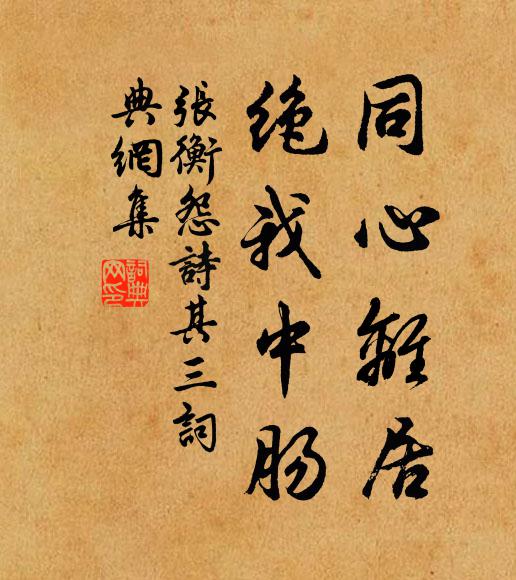 同心離居
絶我中肠
張衡怨詩其三詞
典網集
詞典网印